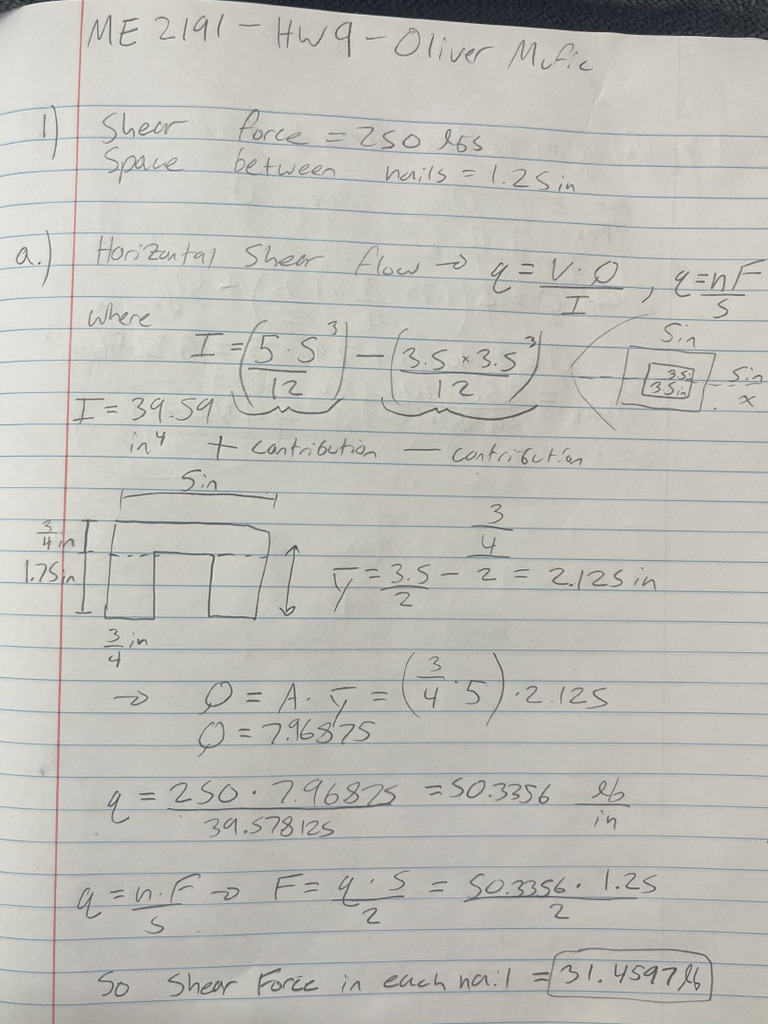 ME 2191 - HW9 - Oliver Mufic
1) Shear force = 250 lbs
Space between nails = 1.25in
a.) Horizontal Shear flow → q = V·Q/I , q = nF/S
where
I = (5·5³/12) - (3.5×3.5³/12)
5in
3.5in
3.5in
5in
x
I = 39.59
in⁴ + contribution - contribution
5in
3/4 in
1.75in
ȳ = 3.5/2 - (3/4)/2 = 2.125in
3/4 in
→ Q = A·ȳ = (3/4·5)·2.125
Q = 7.96875
q = 250·7.96875/39.578125 = 50.3356 lb/in
q = n·F/S → F = q·S/2 = 50.3356·1.25/2
So Shear Force in each nail = 31.4597lb